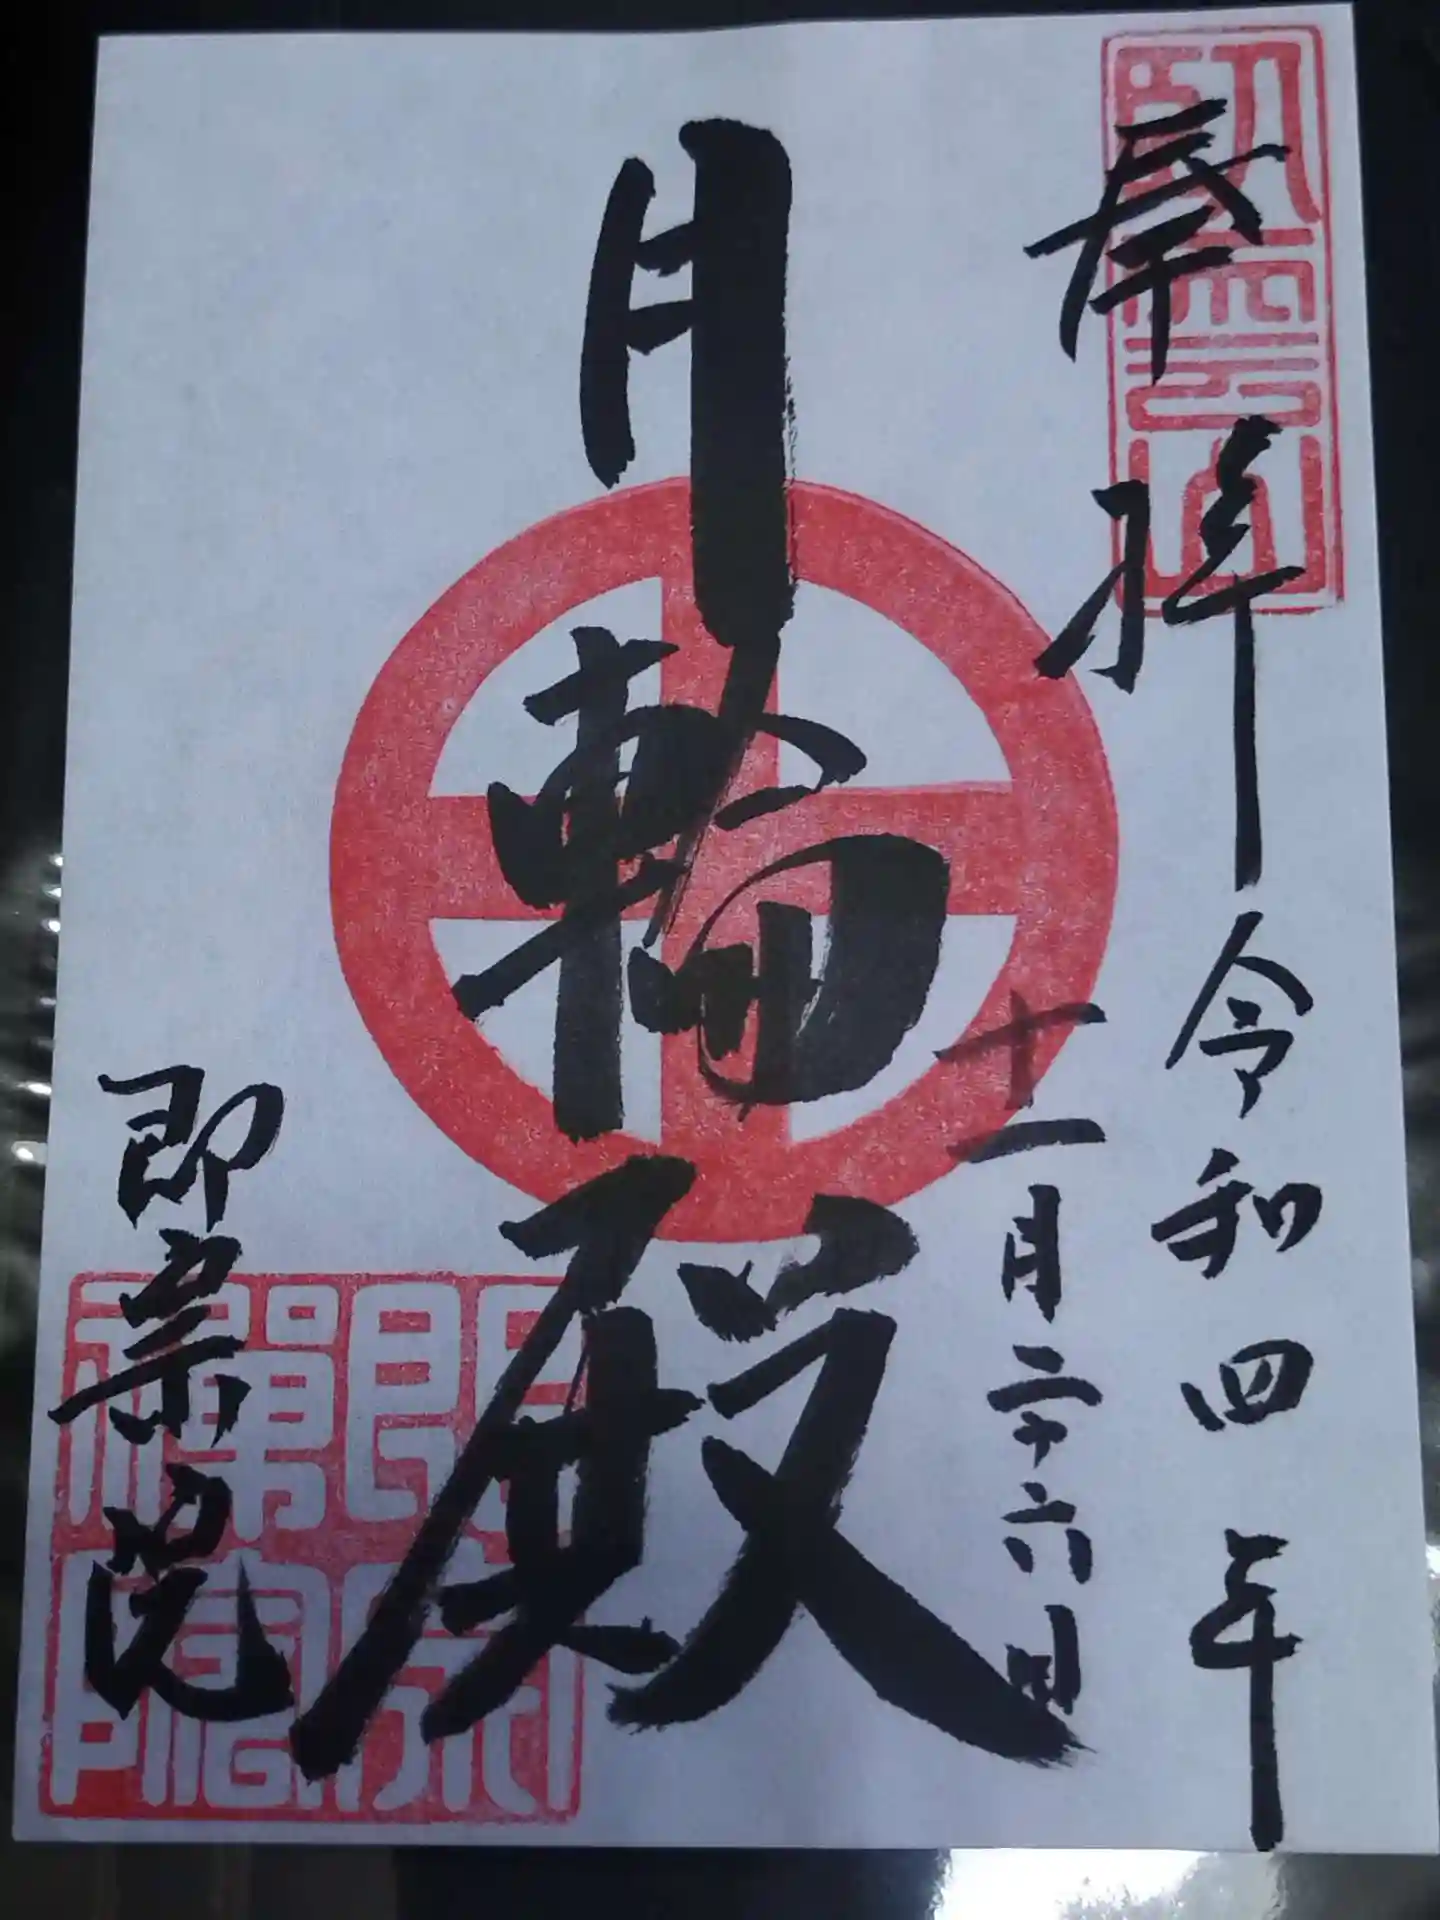 奉拝
令和四年
十一月二十六日
月輪殿
即宗院
臥雲山